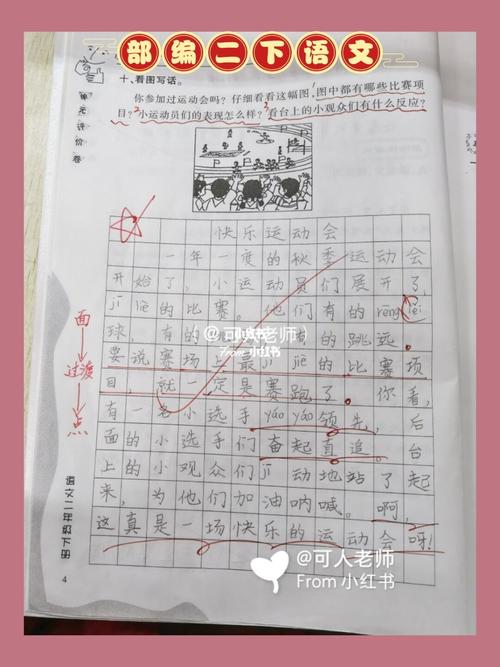 部编二下语文
单元评价卷
十、看图写话。
你参加过运动会吗？仔细看看这幅图，图中都有哪些比赛项
目？小运动员们的表现怎么样？看台上的小观众们有什么反应？
快乐运动会
一年一度的秋季运动会
开始了，小运动员们展开了
jī liè的比赛。他们有的rēng lěi
球，有的
有的跳远。
要说赛场上最jī jiē的比赛项
目，就一定是赛跑了。你看，
有一名小选手yáo yáo领先，后
面的小选手们奋起直追。台
上的小观众们jī动地站了起
来，为他们加油呐喊。啊，
这真是一场快乐的运动会呀！
面
过渡
点
语文二年级下册
4
@可人老师
小红书
From 小红书
@可人老师
From 小红书